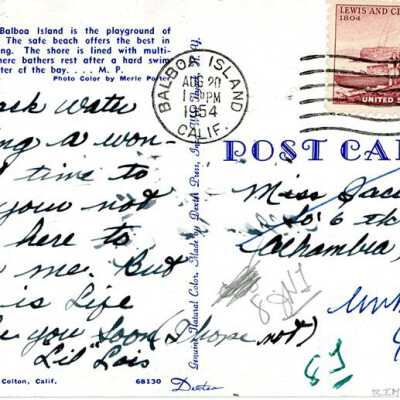 Balboa Island is the playground of
The safe beach offers the best in
ng. The shore is lined with multi-
here bathers rest after a hard swim
ter of the bay. . . . M. P.
Photo Color by Merle Porter
BALBOA ISLAND
AUG 20
1 PM
1954
CALIF.
LEWIS AND C
1804
UNITED S
ack Water
ng a won-
time to
your not
here to
me. But
is Life
you Soon (I hope not)
Lil' Lois
Colton, Calif.
68130
Dexter
Genuine Natural Color, Made by Dexter Press, Inc.
POST CA
Miss Jac
Alhambra,